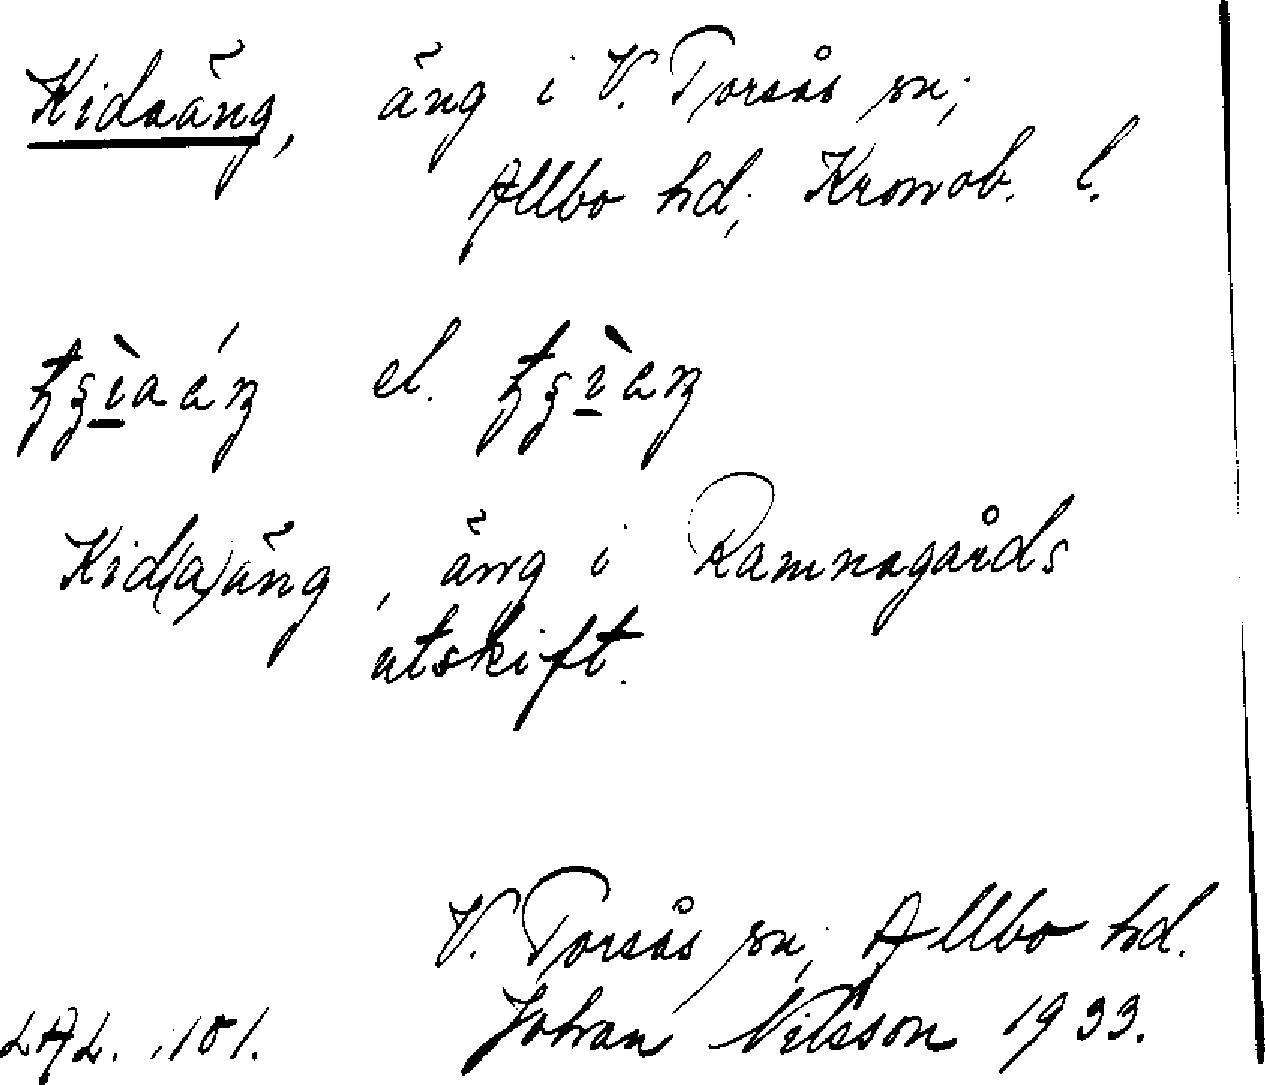 Kidaäng, äng i V. Torsås sn;
Allbo hd; Kronob. l.
el.
Kid(a)äng, äng i Ramnagårds
utskift.
V. Torsås sn; Allbo hd.
LAL. 101. Johan Nilsson 1933.